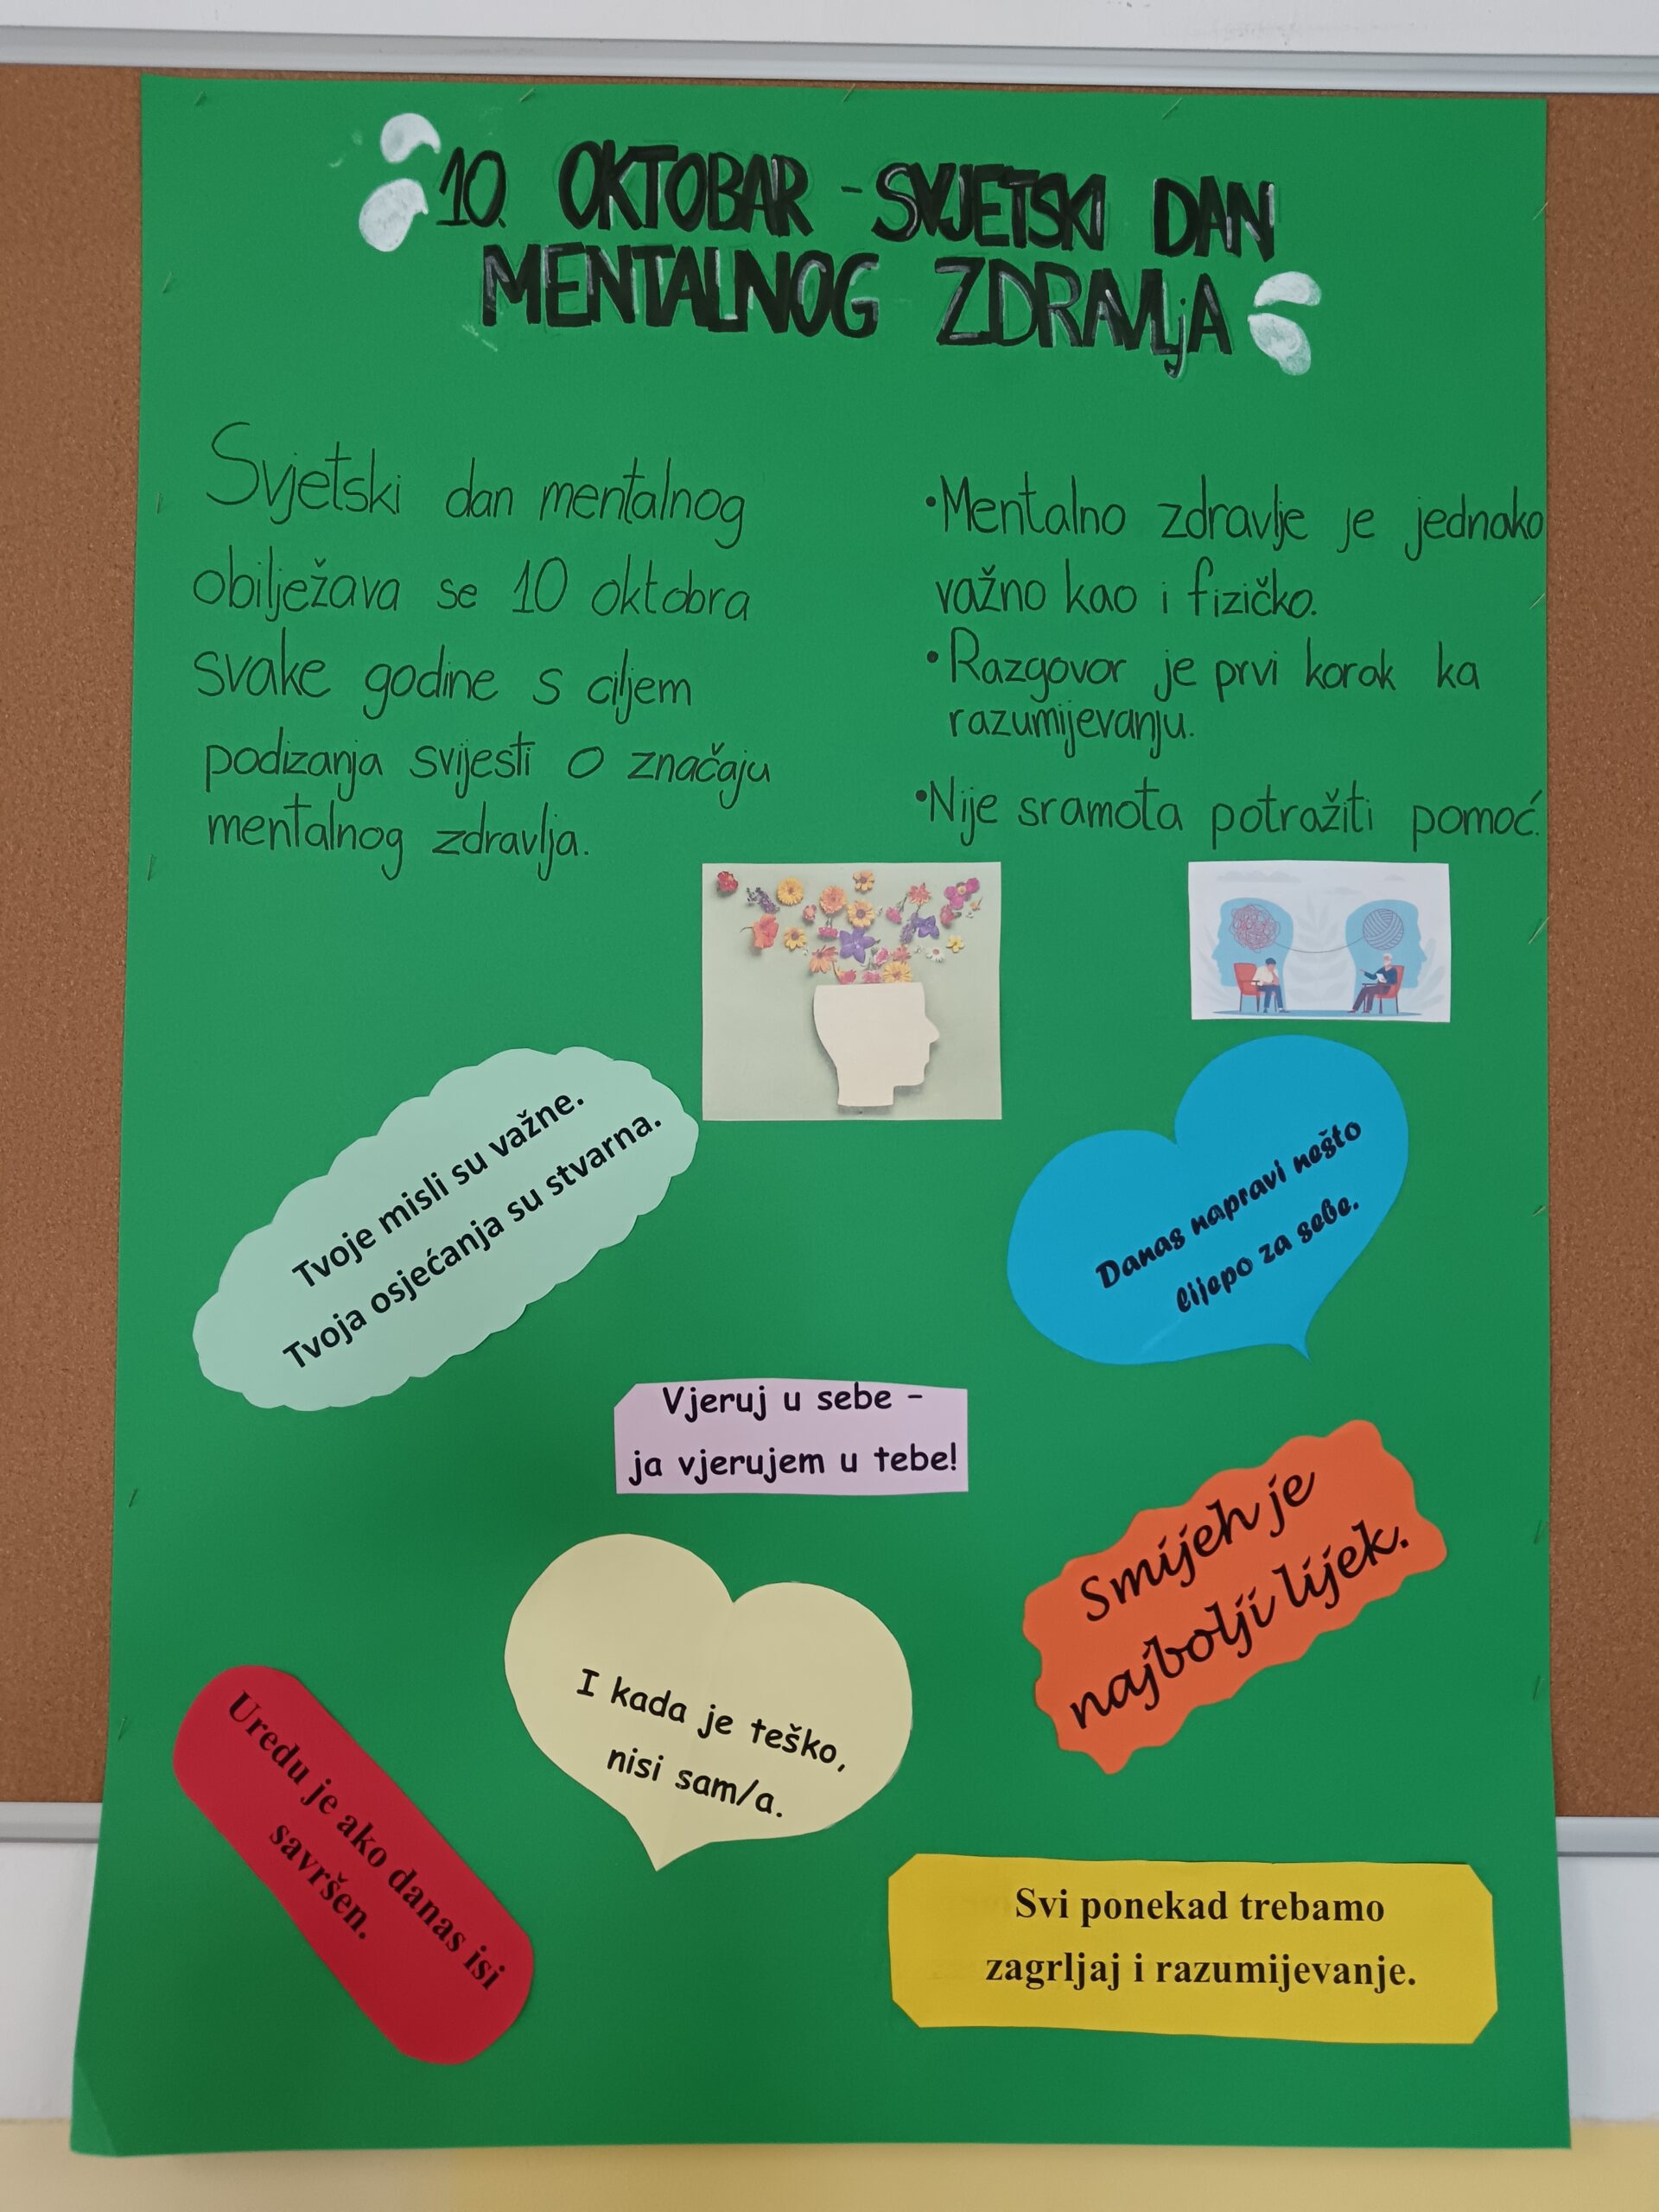 10. OKTOBAR - SVJETSKI DAN
MENTALNOG ZDRAVLjA
Svjetski dan mentalnog
obilježava se 10 oktobra
svake godine s ciljem
podizanja svijesti o značaju
mentalnog zdravlja.
•Mentalno zdravlje je jednako
važno kao i fizičko.
•Razgovor je prvi korak ka
razumijevanju.
•Nije sramota potražiti pomoć.
Tvoje misli su važne.
Tvoja osjećanja su stvarna.
Danas napravi nešto
lijepo za sebe.
Vjeruj u sebe –
ja vjerujem u tebe!
Smijeh je
najbolji lijek.
I kada je teško,
nisi sam/a.
Uredu je ako danas isi
savršen.
Svi ponekad trebamo
zagrljaj i razumijevanje.